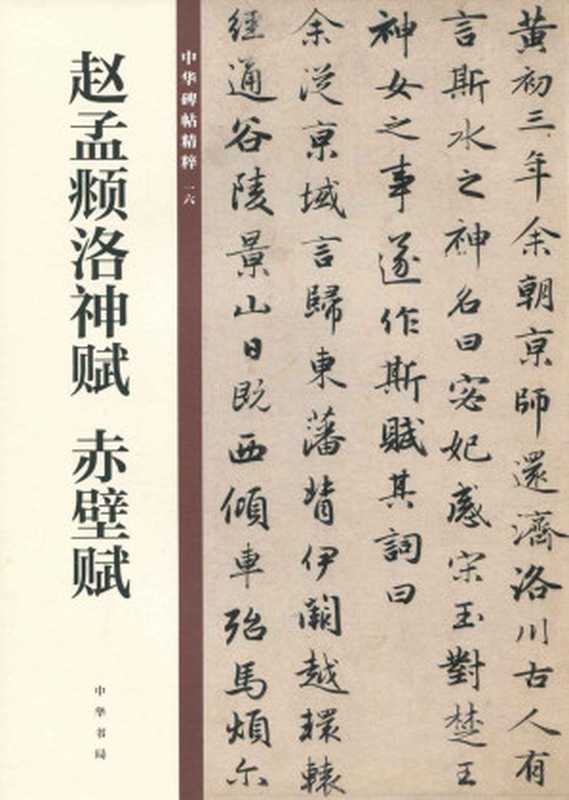 黄初三年余朝京師還濟洛川古人有
言斯水之神名曰宓妃感宋玉對楚王
神女之事遂作斯賦其詞曰
余從京域言歸東藩背伊闕越轘轅
經通谷陵景山日既西傾車殆馬煩尔
中华碑帖精粹 一六
赵孟𫖯洛神赋 赤壁赋
中华书局